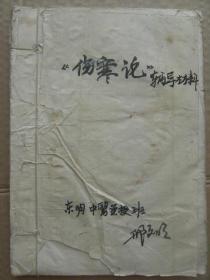 "伤寒论"辅导材料
东明中医夜校班